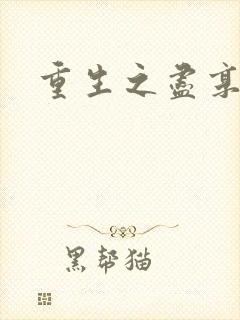 重生之盡
黑帮猫